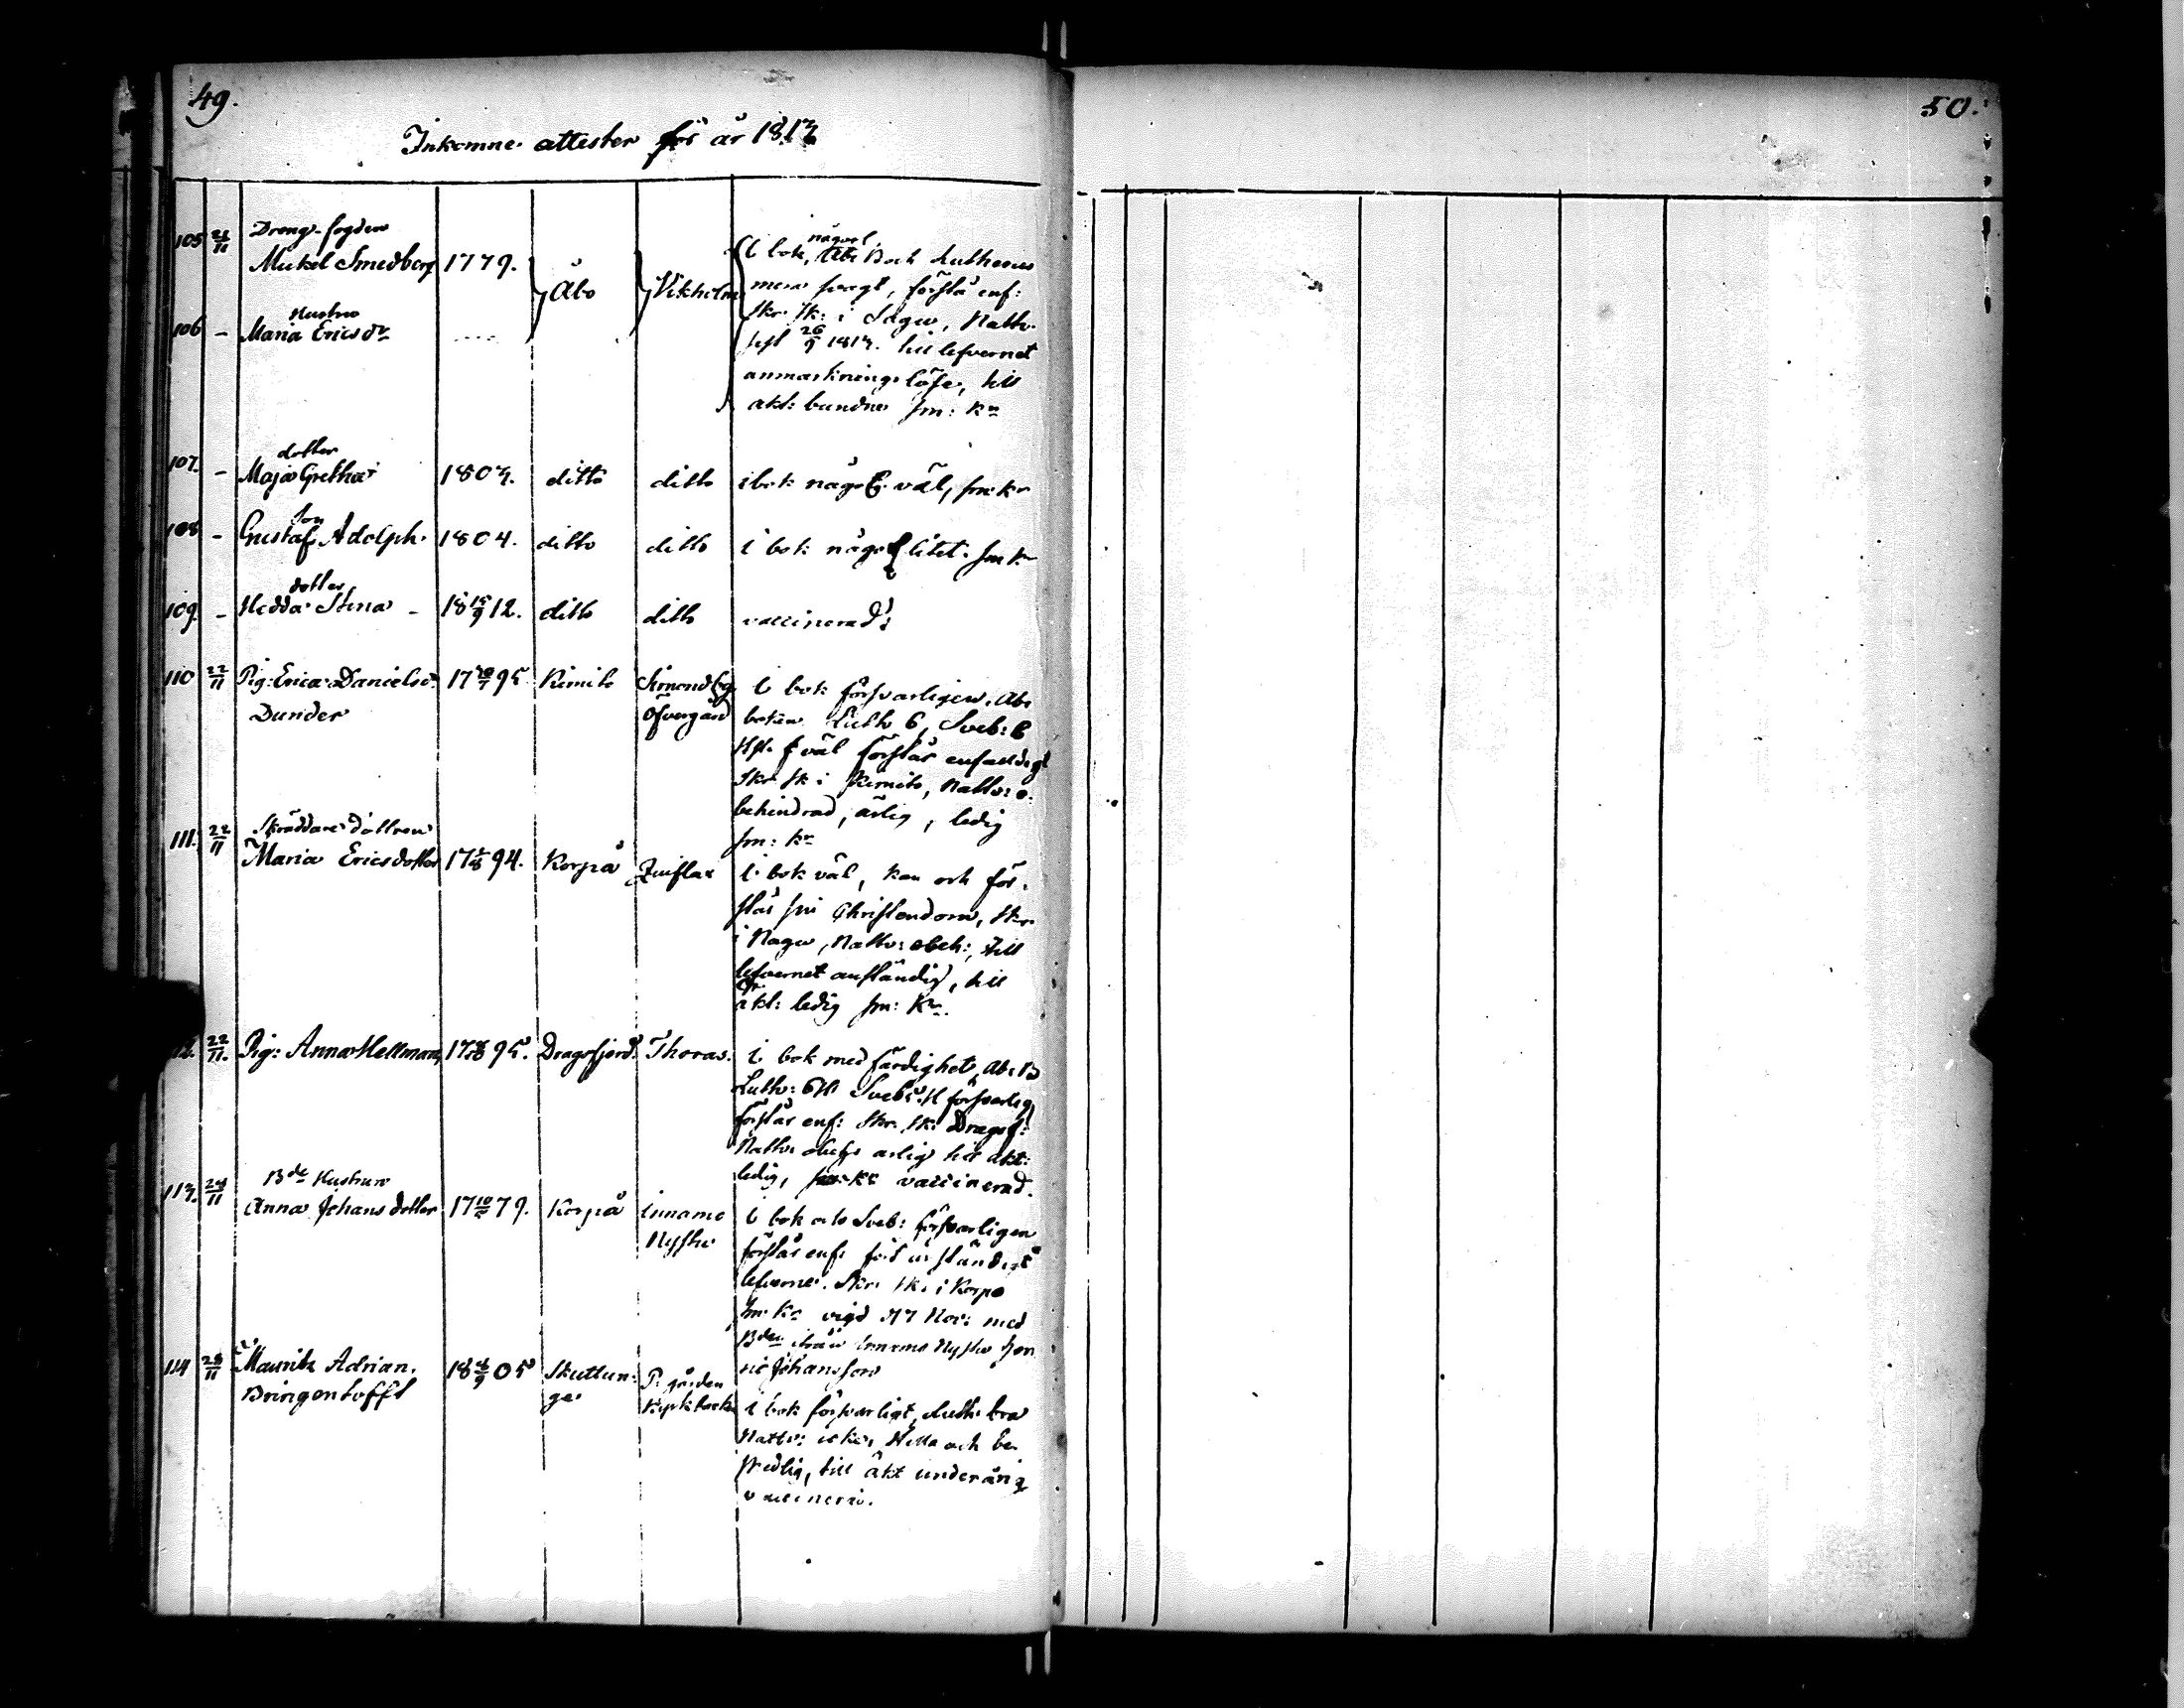 49.
50.
Inkomne attester för år 1813
105 21/11 Drengs-fogden
Mickel Smedberg 1779. Åbo Vikholm
106 - Hustru
Maria Ericsdr
I bok, någorl. Abc Boch Lutherus
mera svagt, förstå enf:
Skr. sk: i Sagu, Nattv.
sist 26/9 1813. till lefvernet
anmärkningslöse, till
äkt: bundne sm: kn
107. - dotter
Maja Gretha 1803. ditto ditto i bok någorl. väl, sm: kn
108 - son
Gustaf Adolph. 1804. ditto ditto i bok någorl litet. sm kn
109. - dotter
Hedda Stina - 18 15/9 12. ditto ditto vaccinerad:
110 22/11 Pig: Erica Danielsdr 95 Kimito
Dunder Öfvergård
I bok försvarligen, Abc
boken Luth 6, Sveb: 6
väl förstår enfaldigt
Skr. sk: i Kimito, Nattv: o.
behindrad, ärlig, ledig
sm: kn
111. 22/11 Skräddare dottren
Maria Ericsdotter 94. Korpå
I bok väl, kan och för.
står sin Christendom, Skr.
i Nagu, Nattv: obeh:, till
lefvernet anständig, till
äkt: ledig sm: kn.
22/11. Pig: Anna Hellman, 95. Dragsfjerd. Thoras.
I bok med färdighet, Abc B
Luth: Sveb: försvarlig
förstår enf: Skr. sk: Dragsf:
Nattv. ärlig till äkt:
ledig, sm: kn vaccinerad.
113. 24/11 Bde Hustrun
Anna Johansdotter 17 10/2 79. Korpå Innamo
Nystu
I bok och Sveb: försvarligen
förstår enf: fört anständigt
lefverne. Skr. sk: i Korpo
sm: kn vigd Nov: med
Bden ifrån Innamo Nystu Hen
ric Johansson
114 28/11 Mauritz Adrian. 18 4/9 05 Skuttun:
ge P. gården
Kyrkbacka
I bok försvarligt, Luth. bra
Nattv: icke, stilla och be
skedlig, till äkt underårig
vaccinerad.